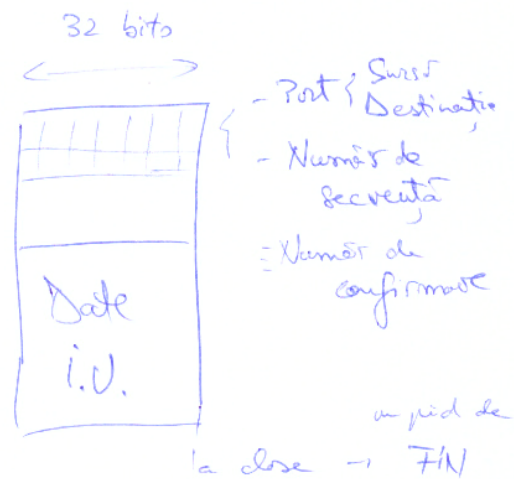 32 biti
- Port { Sursă
Destinație
- Număr de
secvență
- Număr de
confirmare
Date
i.U.
la close → FIN